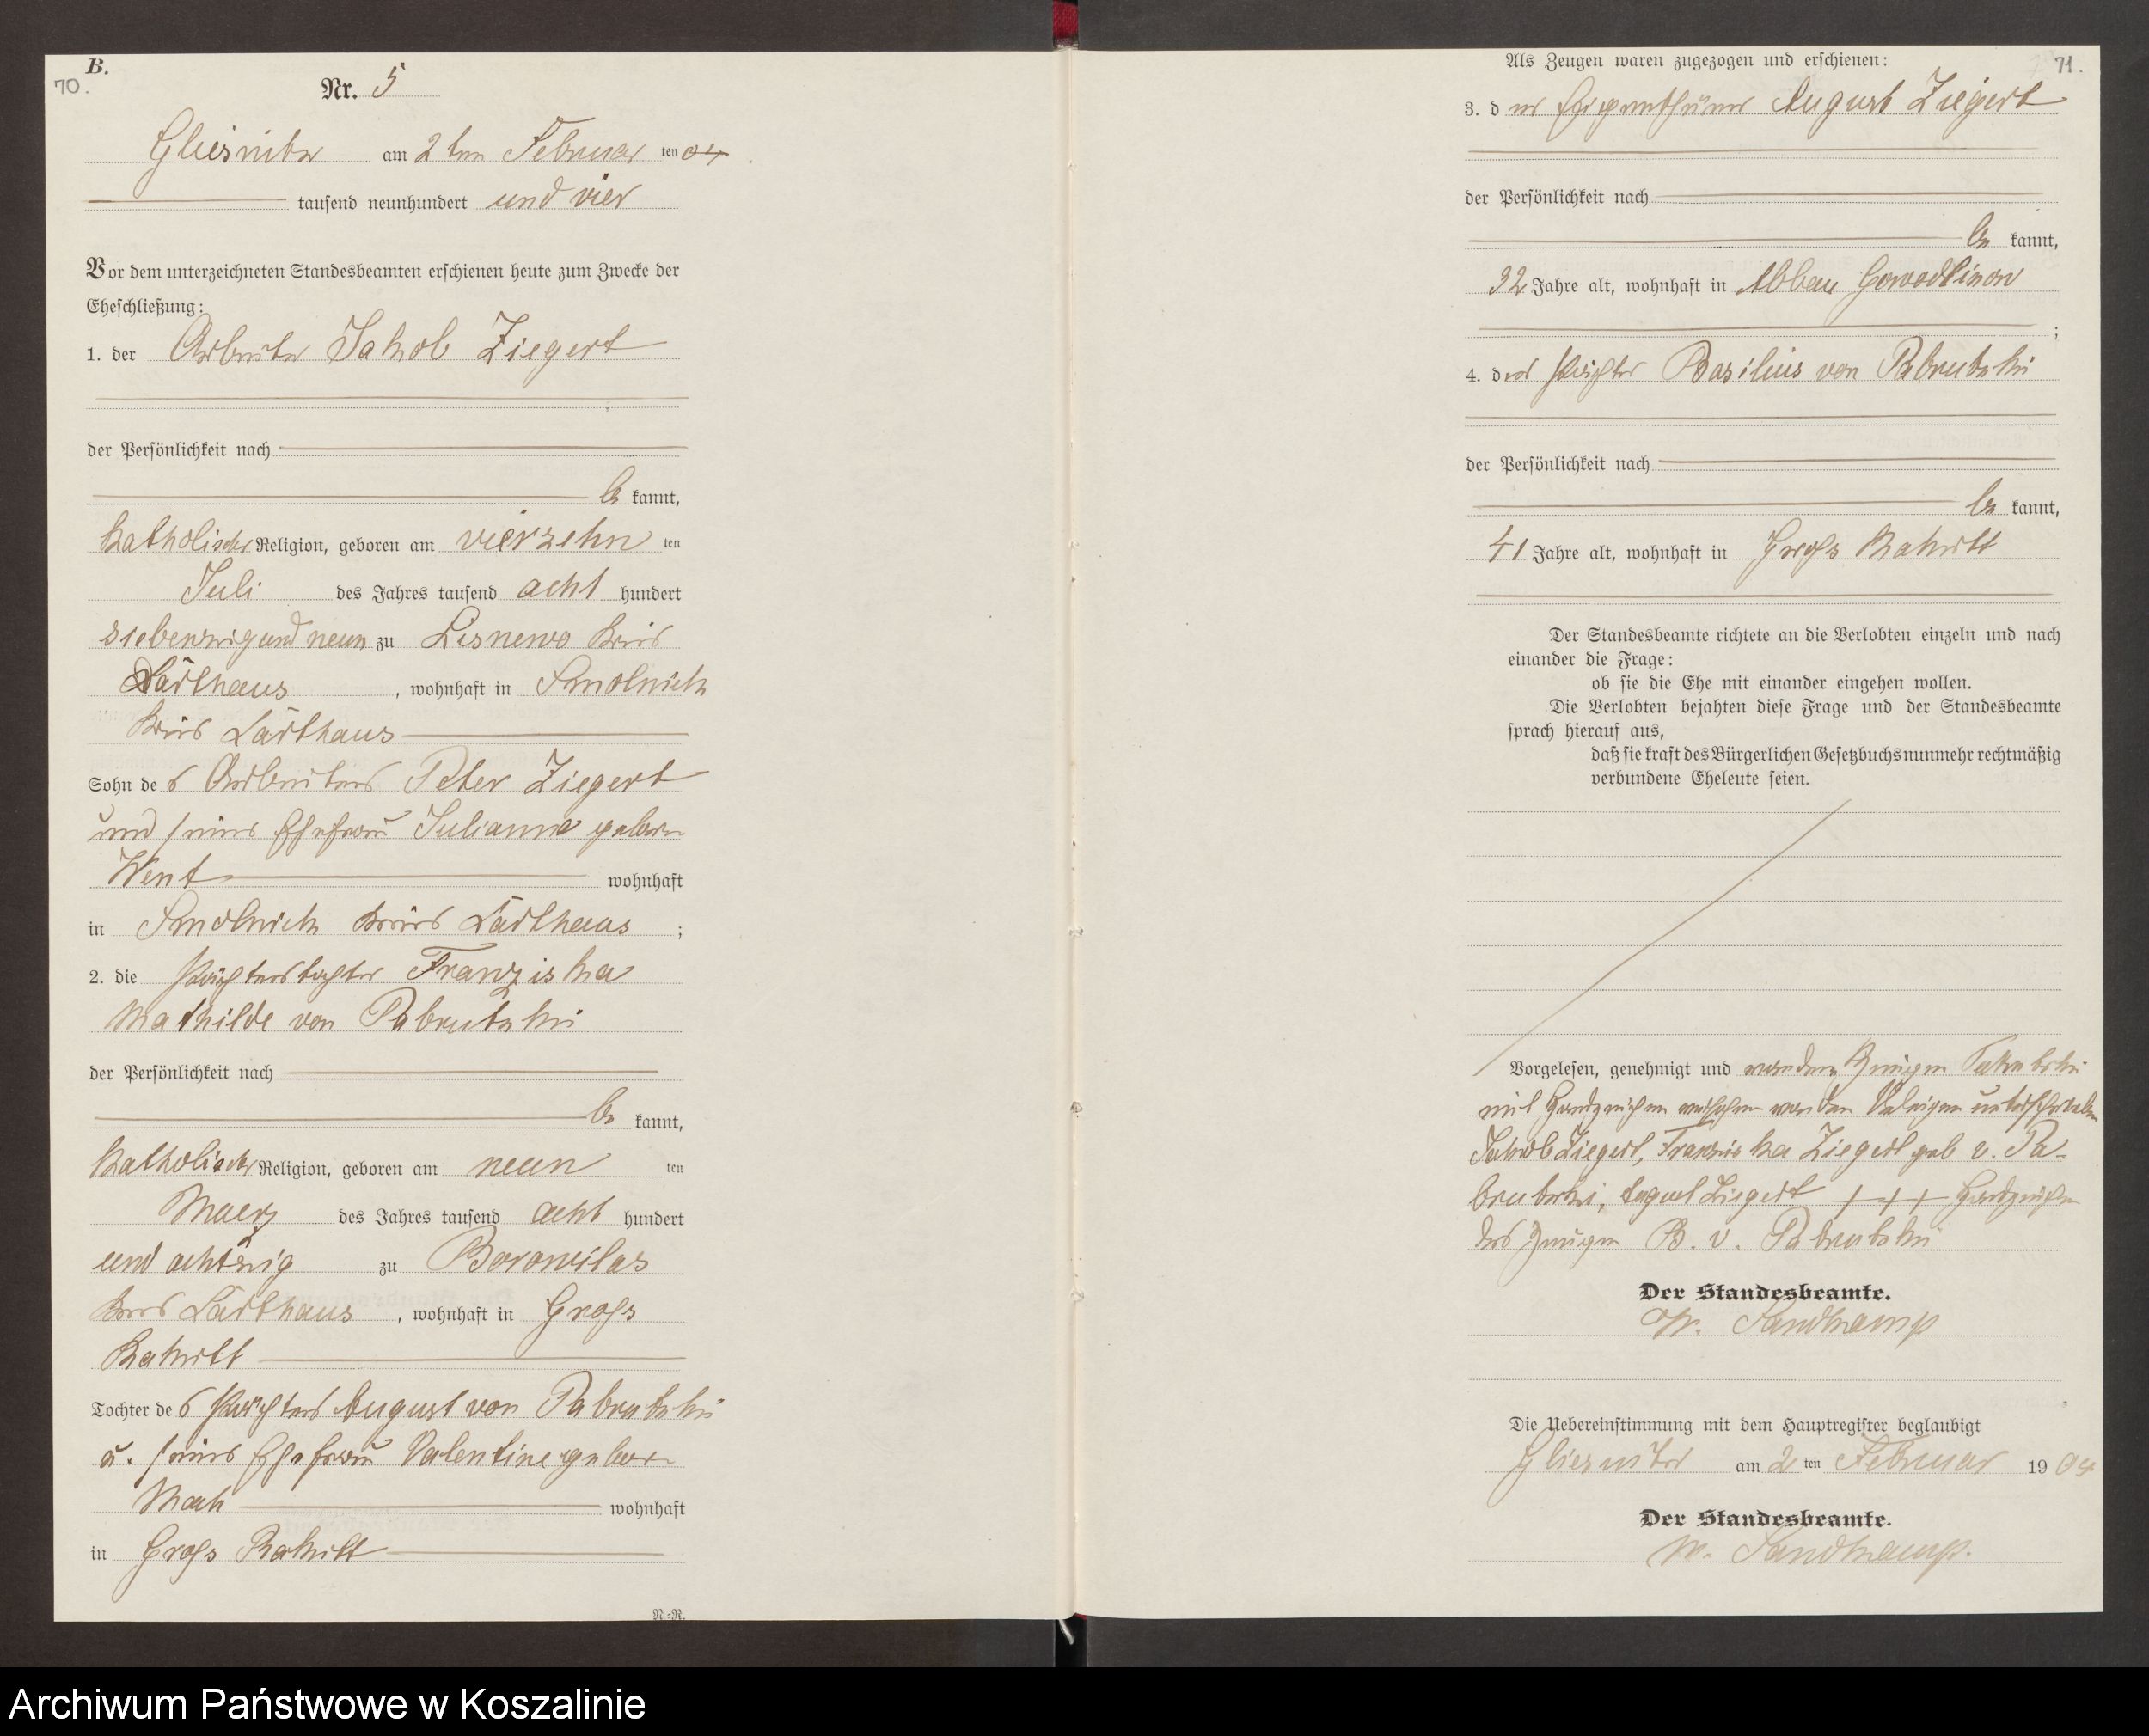 B.
70.
Nr. 5
Gliesnitz am 2ten Februar ten 04
tausend neunhundert und vier
Vor dem unterzeichneten Standesbeamten erschienen heute zum Zwecke der
Eheschließung:
1. der Arbeiter Jakob Ziegert
der Persönlichkeit nach
be kannt,
katholischer Religion, geboren am vierzehn ten
Juli des Jahres tausend acht hundert
siebenzig und neun zu Lisnewo Kreis
Carthaus, wohnhaft in Smolnick
Kreis Carthaus
Sohn des Arbeiters Peter Ziegert
und seiner Ehefrau Julianne geboren
Went wohnhaft
in Smolnick Kreis Carthaus;
2. die Pächterstochter Franziska
Mathilde von Pabrutzki
der Persönlichkeit nach
be kannt,
katholischer Religion, geboren am neun ten
Maerz des Jahres tausend acht hundert
und achtzig zu
Kreis Carthaus, wohnhaft in Groß
Rakitt
Tochter des Pächters August von Pabrutzki
u. seiner Ehefrau Valentine geboren
Mach wohnhaft
in Groß Rakitt
N=R.
71.
Als Zeugen waren zugezogen und erschienen:
3. der Eigenthümer August Ziegert
der Persönlichkeit nach
be kannt,
32 Jahre alt, wohnhaft in Abbau Gowodlinow
;
4. der Pächter Basilius von Pabrutzki
der Persönlichkeit nach
be kannt,
41 Jahre alt, wohnhaft in Groß Rakitt
Der Standesbeamte richtete an die Verlobten einzeln und nach
einander die Frage:
ob sie die Ehe mit einander eingehen wollen.
Die Verlobten bejahten diese Frage und der Standesbeamte
sprach hierauf aus,
daß sie kraft des Bürgerlichen Gesetzbuchs nunmehr rechtmäßig
verbundene Eheleute seien.
Vorgelesen, genehmigt und von dem Zeugen Pabrutzki
mit Handzeichen versehen von den Uebrigen unterschrieben
Jakob Ziegert, Franziska Ziegert geb v. Pa-
brutzki, August Ziegert +++ Handzeichen
des Zeugen B. v. Pabrutzki
Der Standesbeamte.
W. Sandkamp
Die Uebereinstimmung mit dem Hauptregister beglaubigt
Gliesnitz am 2 ten Februar 19 04
Der Standesbeamte.
W. Sandkamp.
Archiwum Państwowe w Koszalinie